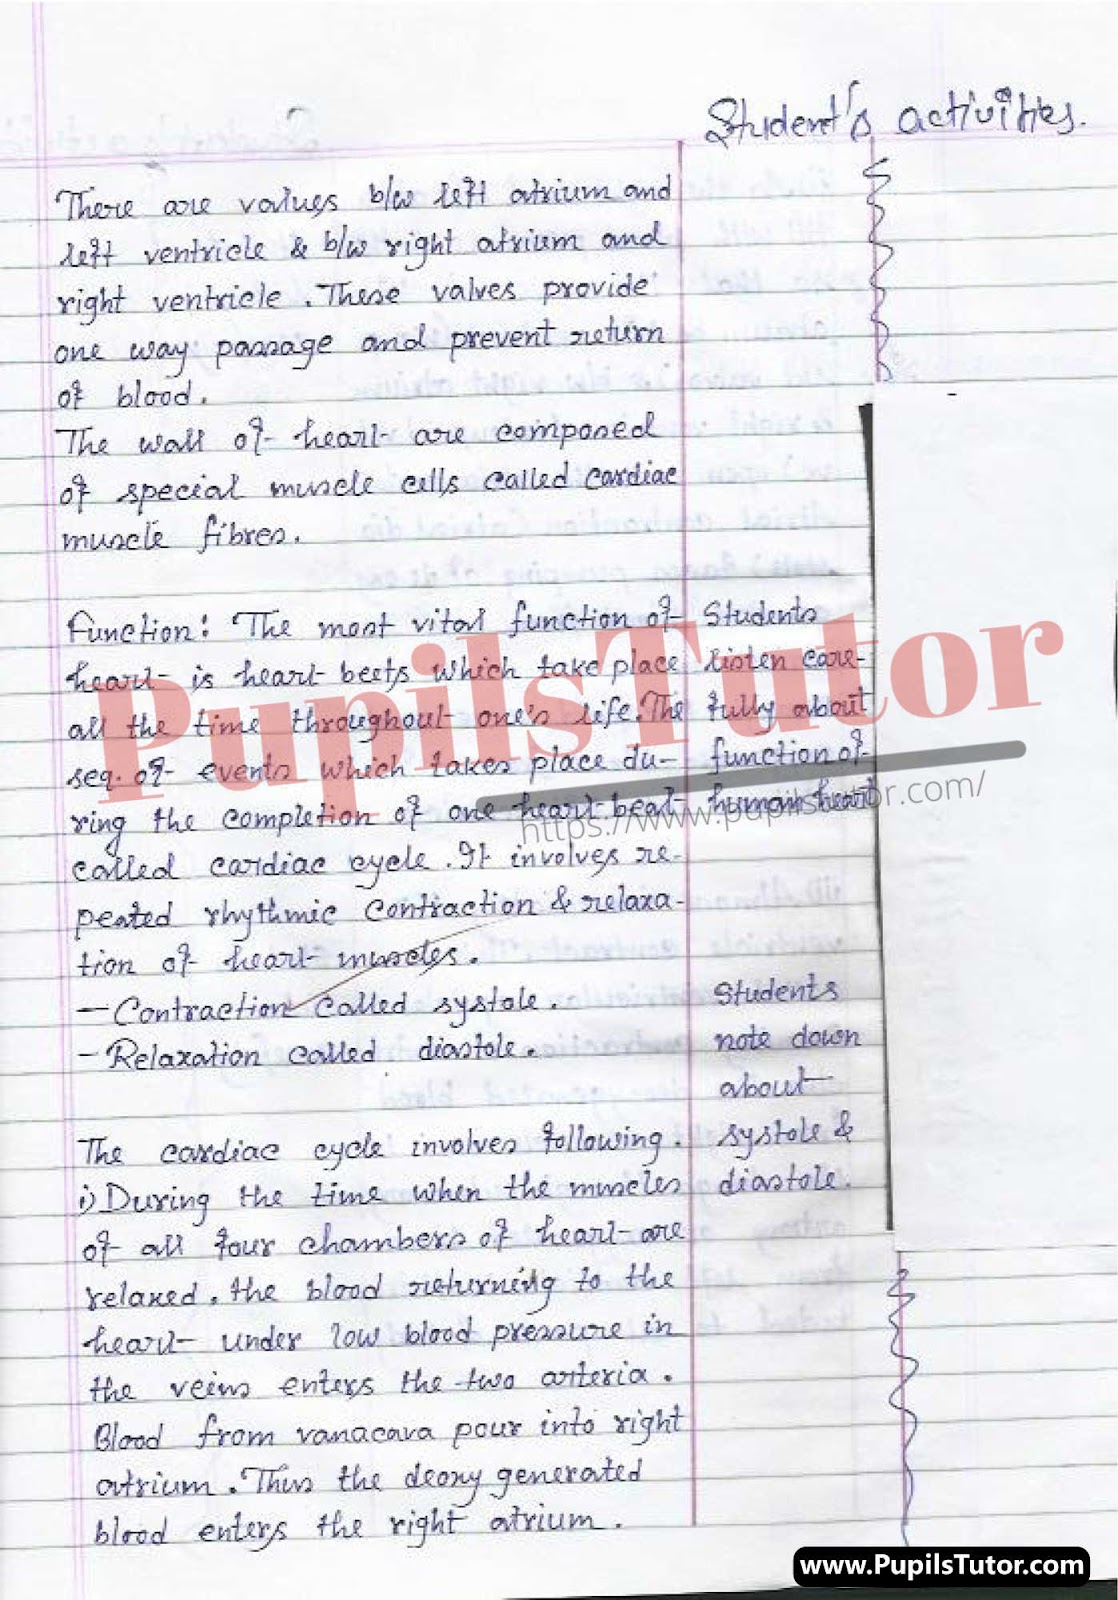 Student's activities.
There are values b/w left atrium and
left ventricle & b/w right atrium and
right ventricle. These valves provide
one way passage and prevent return
of blood.
The wall of heart are composed
of special muscle cells called cardiac
muscle fibres.
Function: The most vital function of
heart is heart beets which take place
all the time throughout one's life. The
seq. of events which takes place du-
ring the completion of one heart beat
called cardiac cycle. It involves re-
peated rhythmic contraction & relaxa-
tion of heart muscles.
- Contraction called systole.
- Relaxation called diastole.
The cardiac cycle involves following.
i) During the time when the muscles
of all four chambers of heart are
relaxed. the blood returning to the
heart under low blood pressure in
the veins enters the two arteria.
Blood from vanacava pour into right
atrium. Thus the deoxygenerated
blood enters the right atrium.
Students
listen care-
fully about
function of
human heart
Students
note down
about
systole &
diastole.
Pupils Tutor
https://www.pupilstutor.com/
www.PupilsTutor.com